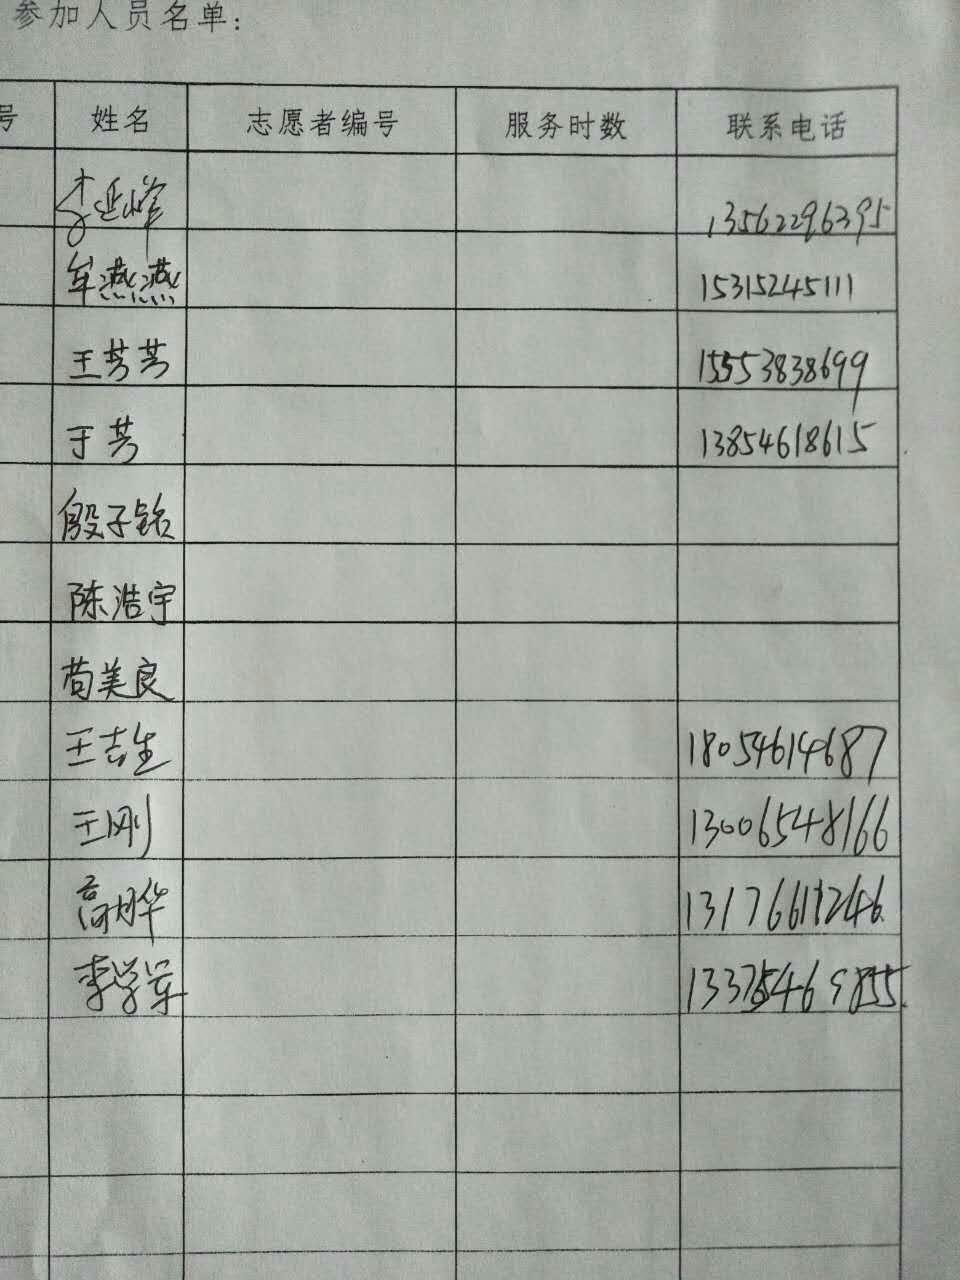 参加人员名单:
号 姓名 志愿者编号 服务时数 联系电话
李延峰 13562296395
牟燕燕 15315245111
王芳芳 15553838699
于芳 13854618615
殷子铭
陈浩宇
苟美良
王吉生 18054614687
王刚 13006548166
高晔 13176611246
李学军